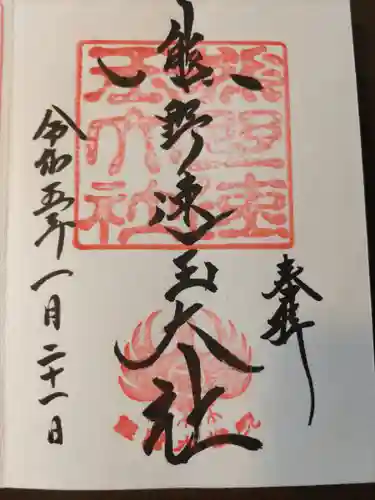 奉拝
熊野速玉大社
令和五年一月二十一日
熊野速
玉大社